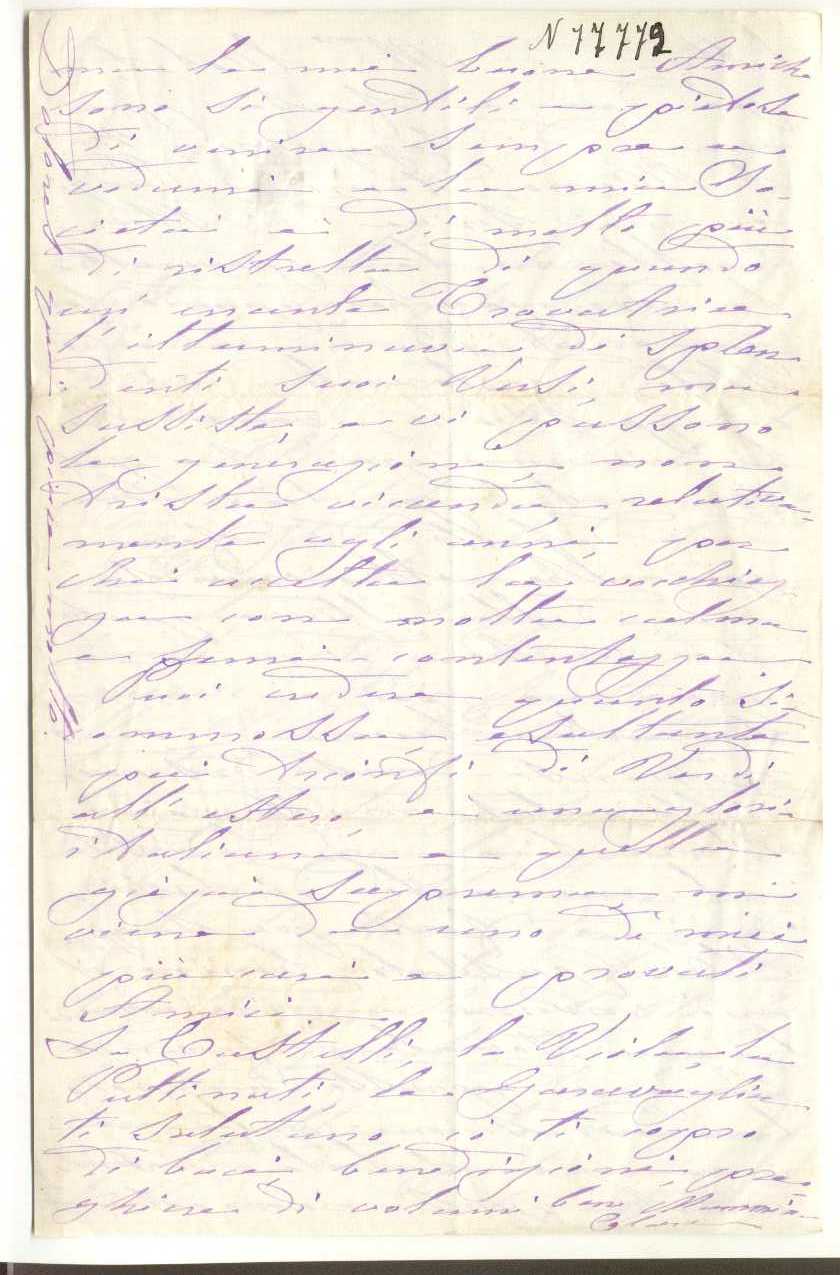 N 17772
ma le mie buone Amiche
sono sì gentili e pietose
di venire sempre a
vedermi e la mia So-
cietà è di molto più
di ristretta di quando
un' incanta Trovatrice
l'illuminava di splen
denti suoi Versi, ma
sussiste, e vi passano
le generazioni, non
trista vicenda, relativa-
mente agli anni, per
chi accetta la vecchiez
za con molta calma
e contentezza
Puoi credere quanto sia
commossa, esultante
pei trionfi di Verdi
all'estero, è una gloria
italiana e quella
gioja suprema mi
viene da uno di miei
più cari e provati
Amici
La Castelli, la Violante
Puttinati, la Garavaglia
ti salutano io ti copro
di baci, benedizioni, pre-
ghiere di volermi bene Mammina
Clara